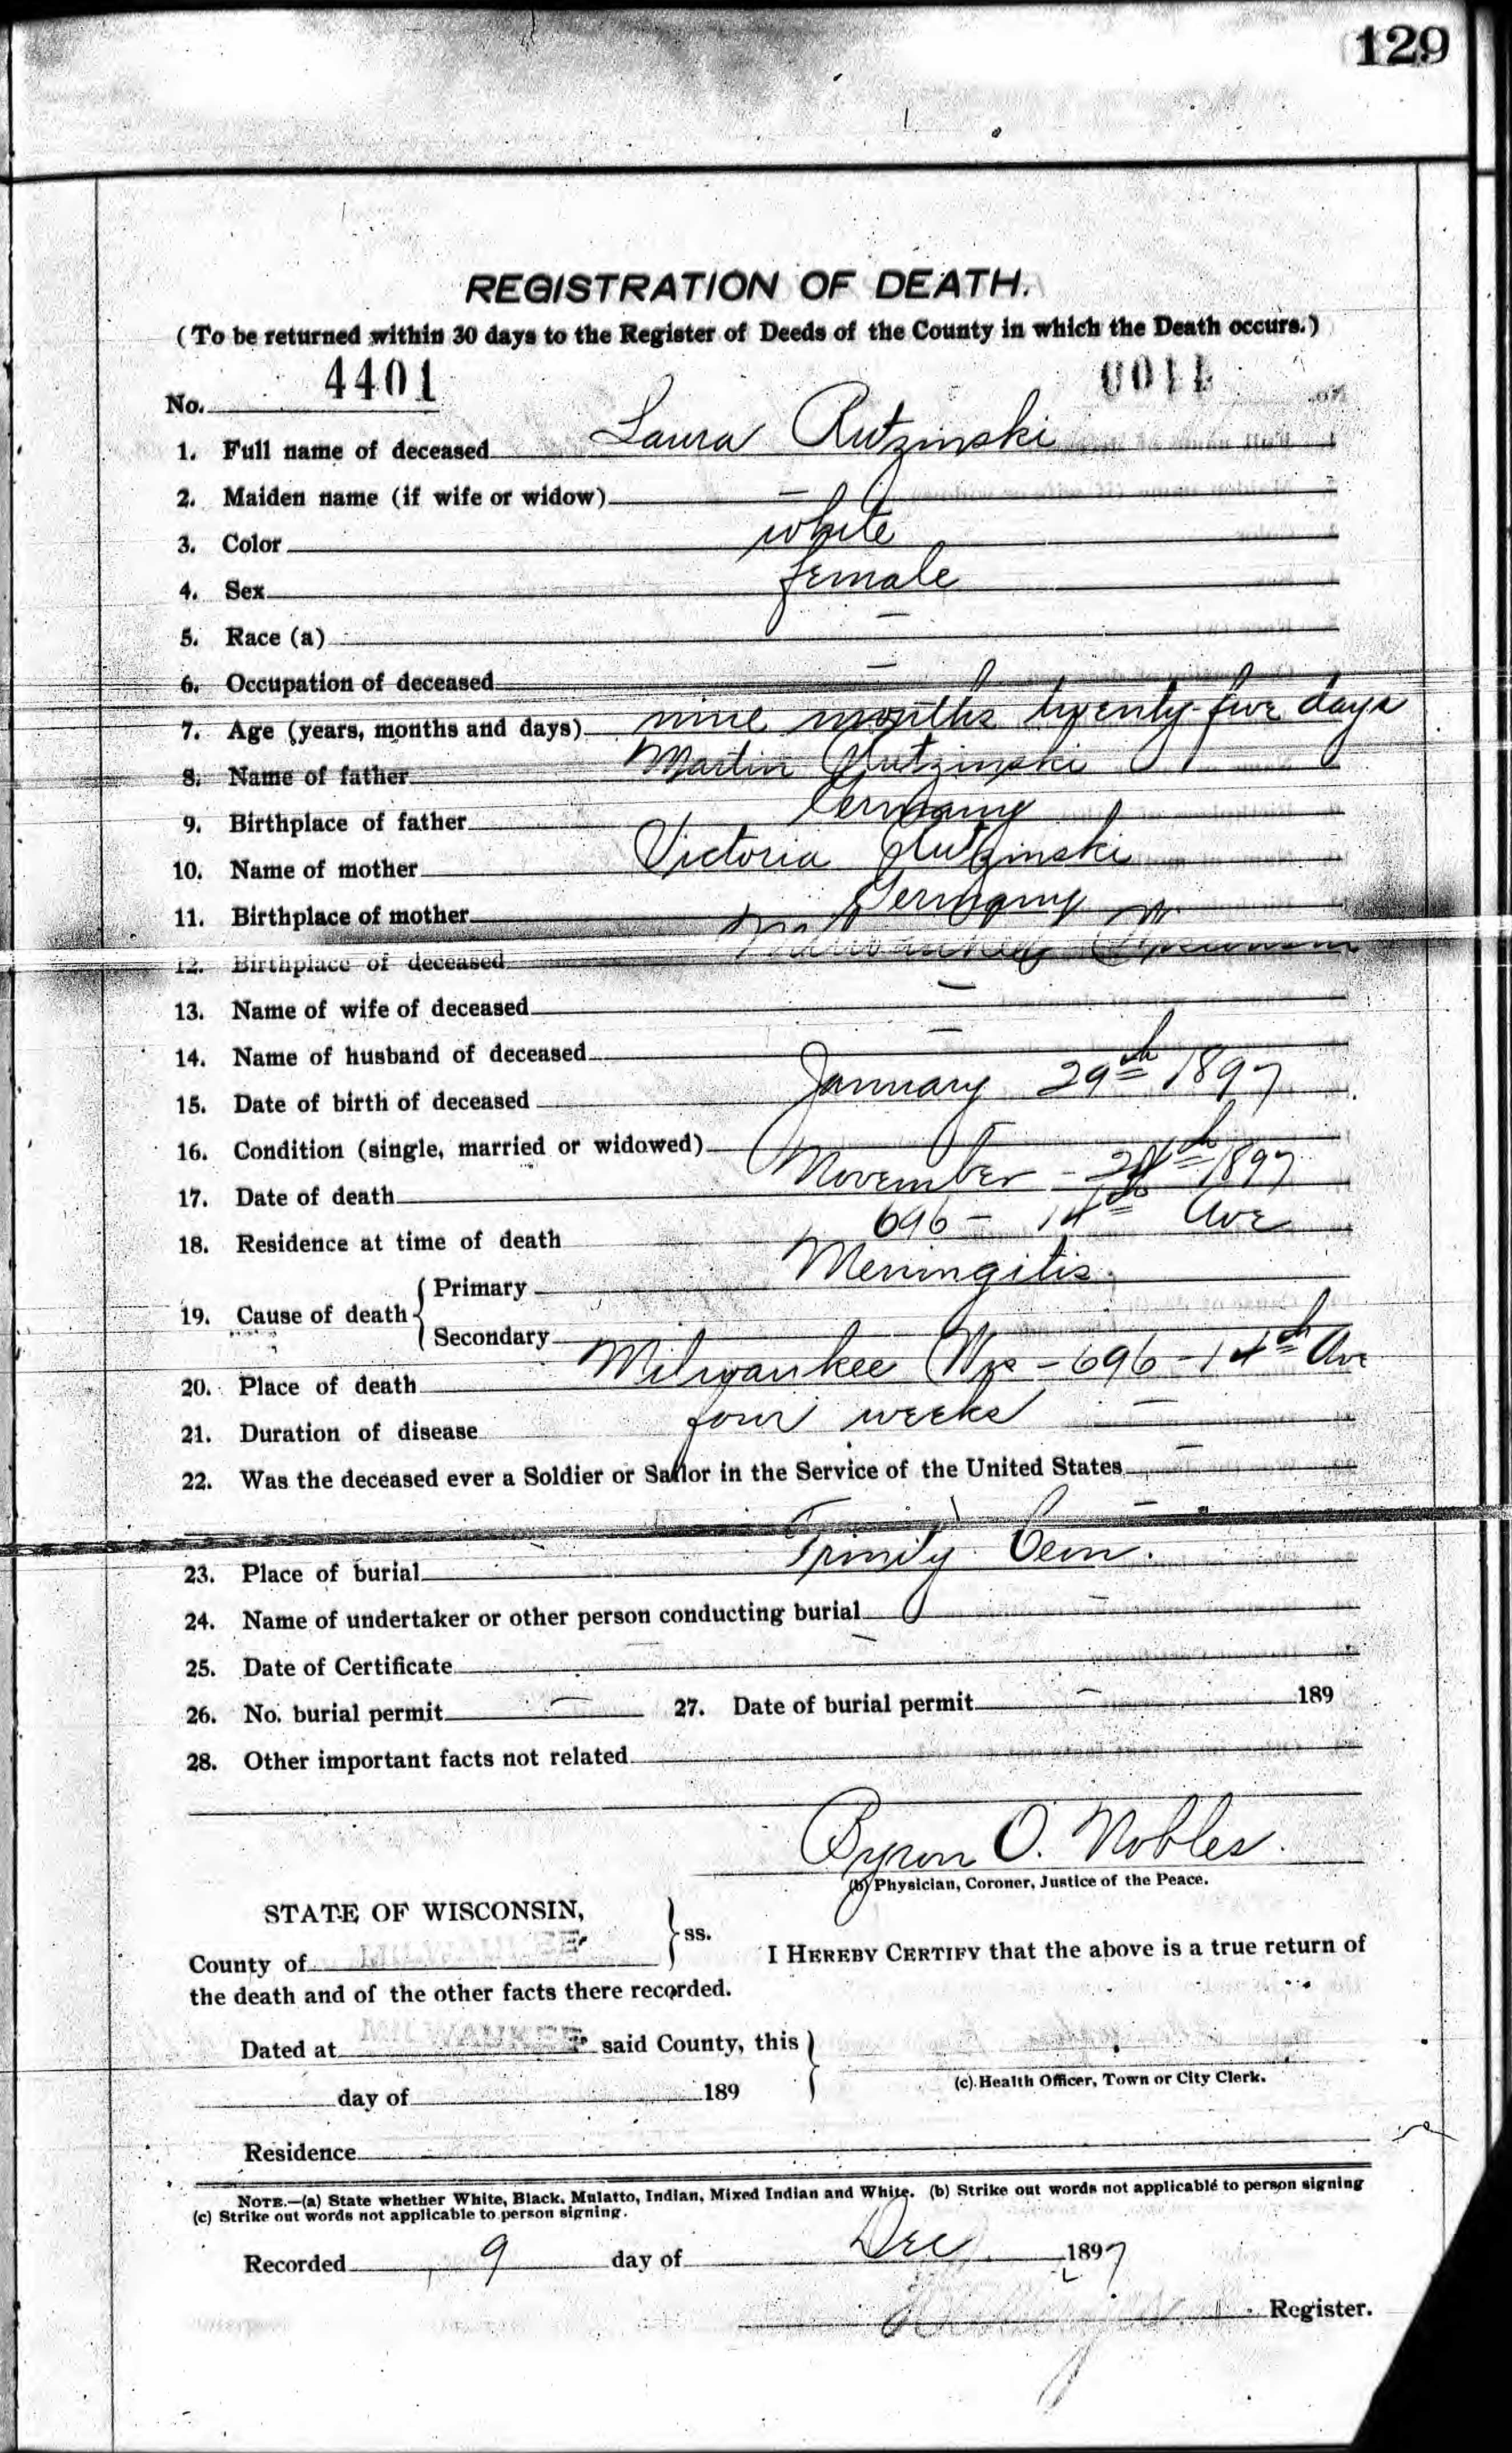 129
REGISTRATION OF DEATH.
(To be returned within 30 days to the Register of Deeds of the County in which the Death occurs.)
No. 4401
1. Full name of deceased Laura Rutzinski
2. Maiden name (if wife or widow) —
3. Color white
4. Sex female
5. Race (a) —
6. Occupation of deceased —
7. Age (years, months and days) nine months twenty-five days
8. Name of father Martin Rutzinski
9. Birthplace of father Germany
10. Name of mother Victoria Rutzinski
11. Birthplace of mother Germany
12. Birthplace of deceased Milwaukee Wisconsin
13. Name of wife of deceased —
14. Name of husband of deceased —
15. Date of birth of deceased January 29th 1897
16. Condition (single, married or widowed) —
17. Date of death November - 1897
18. Residence at time of death 696 - 14th Ave
19. Cause of death { Primary Meningitis
Secondary
20. Place of death Milwaukee Wis - 696 - 14th Ave
21. Duration of disease four weeks —
22. Was the deceased ever a Soldier or Sailor in the Service of the United States —
—
23. Place of burial Trinity Cem.
24. Name of undertaker or other person conducting burial —
25. Date of Certificate —
26. No. burial permit — 27. Date of burial permit — 189
28. Other important facts not related
Byron O. Nobles.
(b) Physician, Coroner, Justice of the Peace.
STATE OF WISCONSIN,
County of MILWAUKEE } ss. I HEREBY CERTIFY that the above is a true return of
the death and of the other facts there recorded.
Dated at MILWAUKEE said County, this }
day of 189
(c) Health Officer, Town or City Clerk.
Residence
NOTE.—(a) State whether White, Black, Mulatto, Indian, Mixed Indian and White. (b) Strike out words not applicable to person signing
(c) Strike out words not applicable to person signing.
Recorded 9 day of Dec 1897
Register.